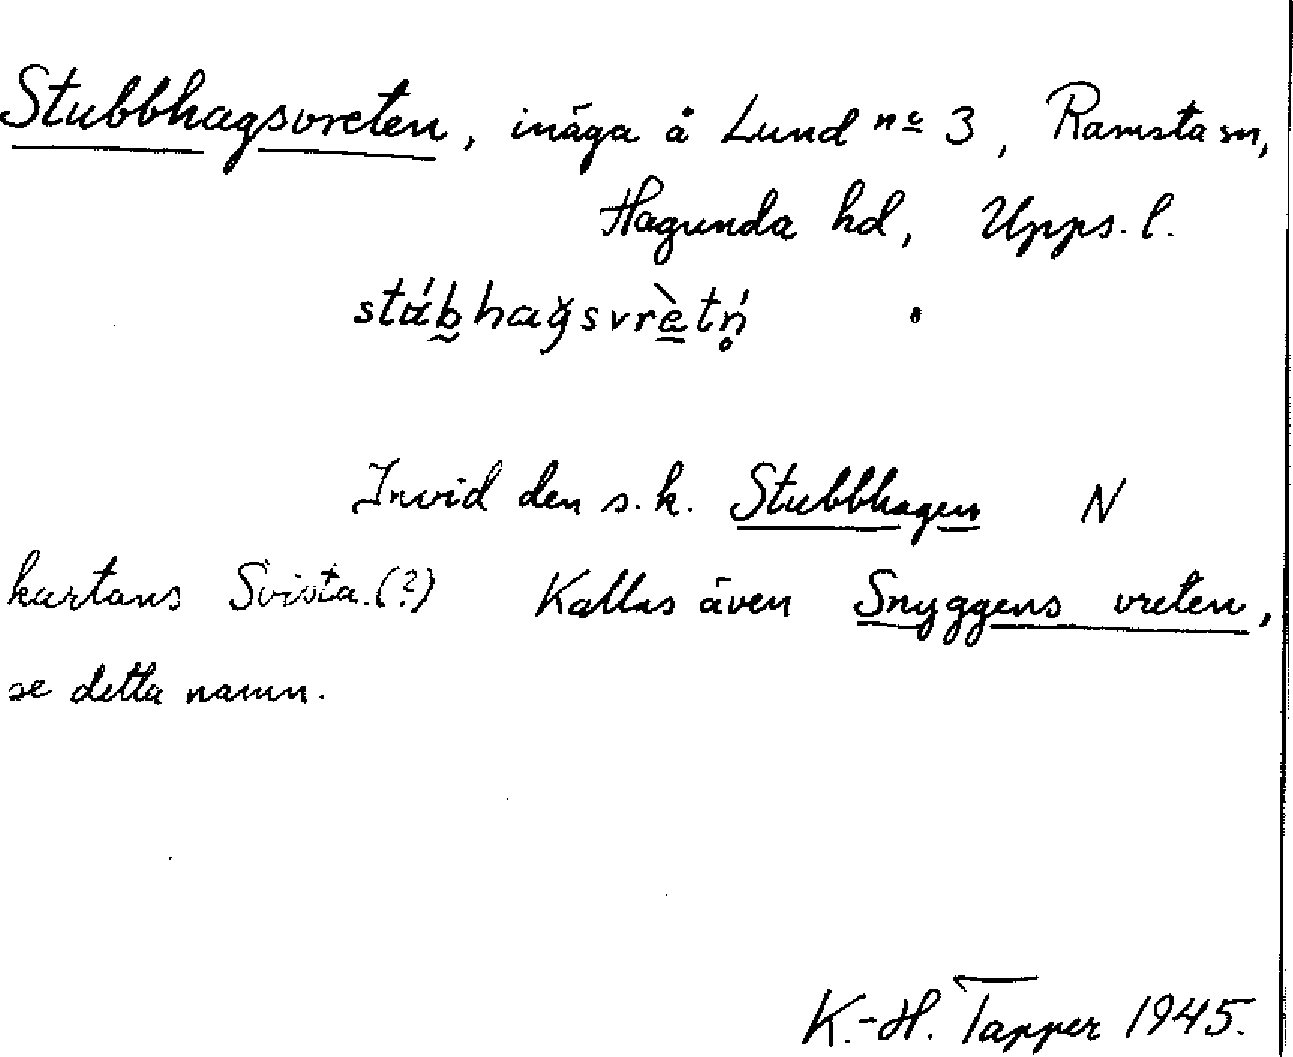 Stubbhagsvreten, inäga å Lund no 3, Ramsta sn,
Hagunda hd, Upps. l.
stábhagsvrètń̥
Invid den s.k. Stubbhagen N
kartans Svista.(?) Kallas även Snyggens vreten,
se detta namn.
K.-H. Tapper 1945.